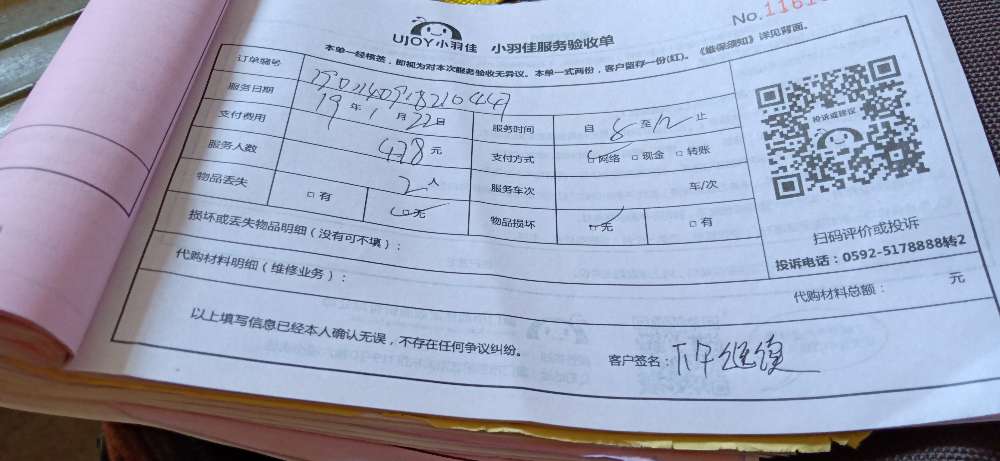 No.1181
UJOY小羽佳 小羽佳服务验收单
本单一经核签，即视为对本次服务验收无异议。本单一式两份，客户留存一份(红)。《维保须知》详见背面。
订单编号
服务日期 19年1月22日 服务时间 自8至12止
支付费用 478元 支付方式 □网络 □现金 □转账
服务人数 2人 服务车次 车/次
物品丢失 □有 □无 物品损坏 □无 □有
损坏或丢失物品明细（没有可不填）：
代购材料明细（维修业务）：
代购材料总额： 元
以上填写信息已经本人确认无误，不存在任何争议纠纷。
客户签名：
投诉或建议
扫码评价或投诉
投诉电话：0592-5178888转2